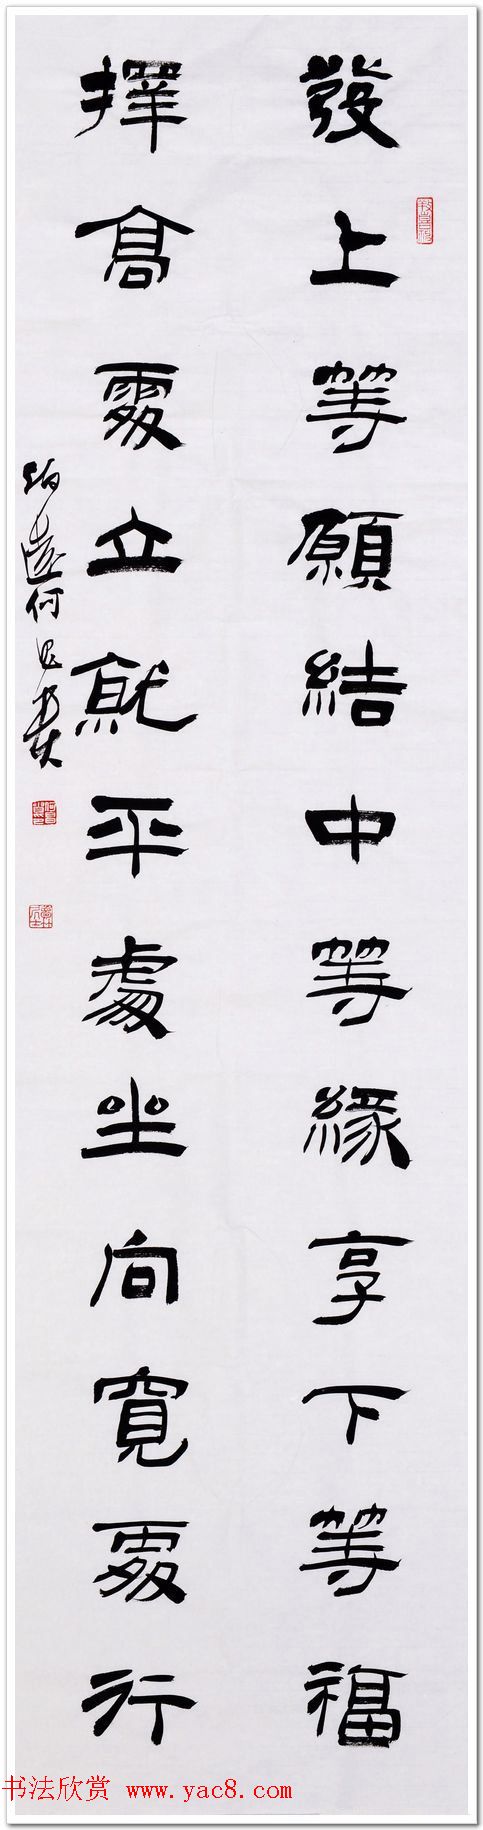 發上等願結中等緣享下等福
擇高處立就平處坐向寬處行
何
书法欣赏 www.yac8.com